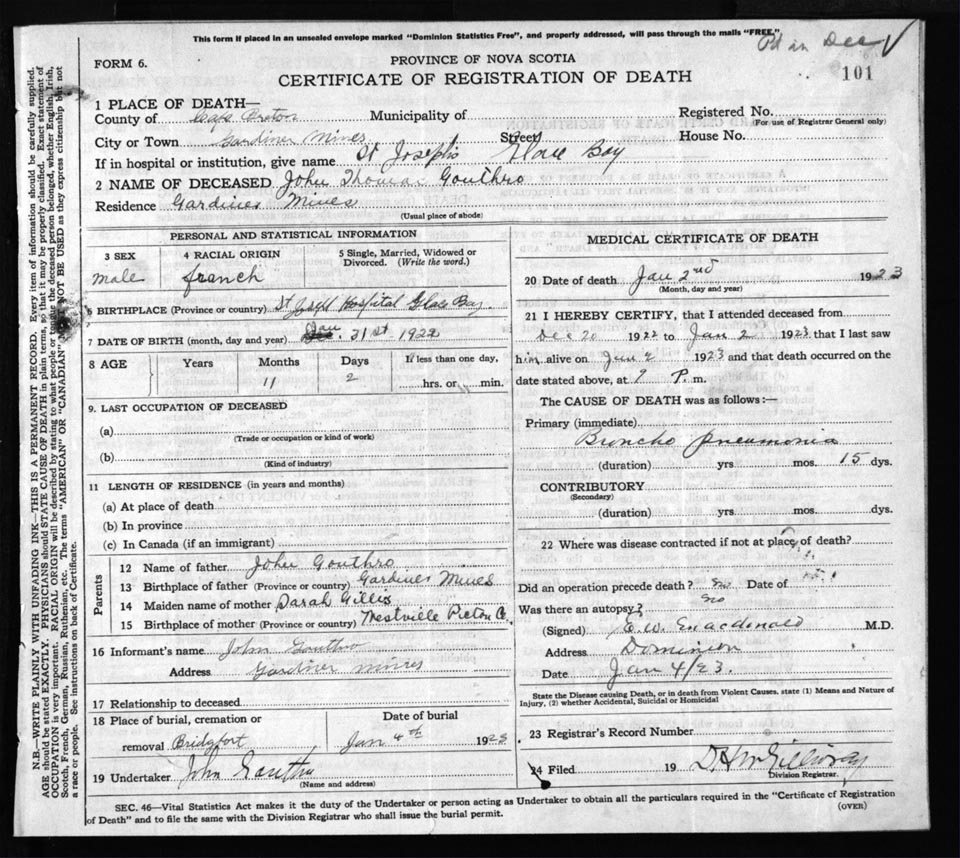 This form if placed in an unsealed envelope marked "Dominion Statistics Free", and properly addressed, will pass through the mails "FREE."
Pd in Dec
FORM 6.
PROVINCE OF NOVA SCOTIA
101
CERTIFICATE OF REGISTRATION OF DEATH
1 PLACE OF DEATH—
County of Cape Breton Municipality of
Registered No.
(For use of Registrar General only)
City or Town Gardiner Mines Street House No.
If in hospital or institution, give name St Joseph's Glace Bay
2 NAME OF DECEASED John Thomas Gouthro
Residence Gardiner Mines
(Usual place of abode)
PERSONAL AND STATISTICAL INFORMATION
3 SEX 4 RACIAL ORIGIN 5 Single, Married, Widowed or Divorced. (Write the word.)
male french
6 BIRTHPLACE (Province or country) St Joseph Hospital Glace Bay
7 DATE OF BIRTH (month, day and year) Jan 31st 1922
8 AGE Years Months Days If less than one day,
11 2 hrs. or min.
9. LAST OCCUPATION OF DECEASED
(a)
(Trade or occupation or kind of work)
(b)
(Kind of industry)
11 LENGTH OF RESIDENCE (in years and months)
(a) At place of death
(b) In province
(c) In Canada (if an immigrant)
Parents
12 Name of father John Gouthro
13 Birthplace of father (Province or country) Gardiner Mines
14 Maiden name of mother Sarah Gillis
15 Birthplace of mother (Province or country) Westville Pictou Co.
16 Informant's name John Gouthro
Address Gardiner mines
17 Relationship to deceased
18 Place of burial, cremation or Date of burial
removal Bridgeport Jan 4th 1923
19 Undertaker John Gouthro
(Name and address)
MEDICAL CERTIFICATE OF DEATH
20 Date of death Jan 2nd 1923
(Month, day and year)
21 I HEREBY CERTIFY, that I attended deceased from
Dec 20 1922 to Jan 2 1923 that I last saw
him alive on Jan 2 1923 and that death occurred on the
date stated above, at 9 P. m.
The CAUSE OF DEATH was as follows:—
Primary (immediate)
Broncho pneumonia
(duration) yrs mos. 15 dys.
CONTRIBUTORY
(Secondary)
(duration) yrs mos. dys.
22 Where was disease contracted if not at place of death?
Did an operation precede death? no Date of
Was there an autopsy? no
(Signed) E. W. Macdonald M.D.
Address Dominion
Date Jan 4/23.
State the Disease causing Death, or in death from Violent Causes, state (1) Means and Nature of
Injury, (2) whether Accidental, Suicidal or Homicidal
23 Registrar's Record Number
24 Filed 19 D H McGillivray
Division Registrar.
SEC. 46—Vital Statistics Act makes it the duty of the Undertaker or person acting as Undertaker to obtain all the particulars required in the "Certificate of Registration
of Death" and to file the same with the Division Registrar who shall issue the burial permit.
(OVER)
N.B.—WRITE PLAINLY WITH UNFADING INK—THIS IS A PERMANENT RECORD. Every item of information should be carefully supplied.
AGE should be stated EXACTLY. PHYSICIANS should STATE CAUSE OF DEATH in plain terms, so that it may be properly classified. Exact statement of
OCCUPATION is very important. RACIAL ORIGIN will be described by stating to what people or tongue the deceased person belonged, whether English, Irish,
Scotch, French, German, Russian, Ruthenian, etc. The terms "AMERICAN" OR "CANADIAN" MUST NOT BE USED as they express citizenship but not
a race or people. See instructions on back of Certificate.